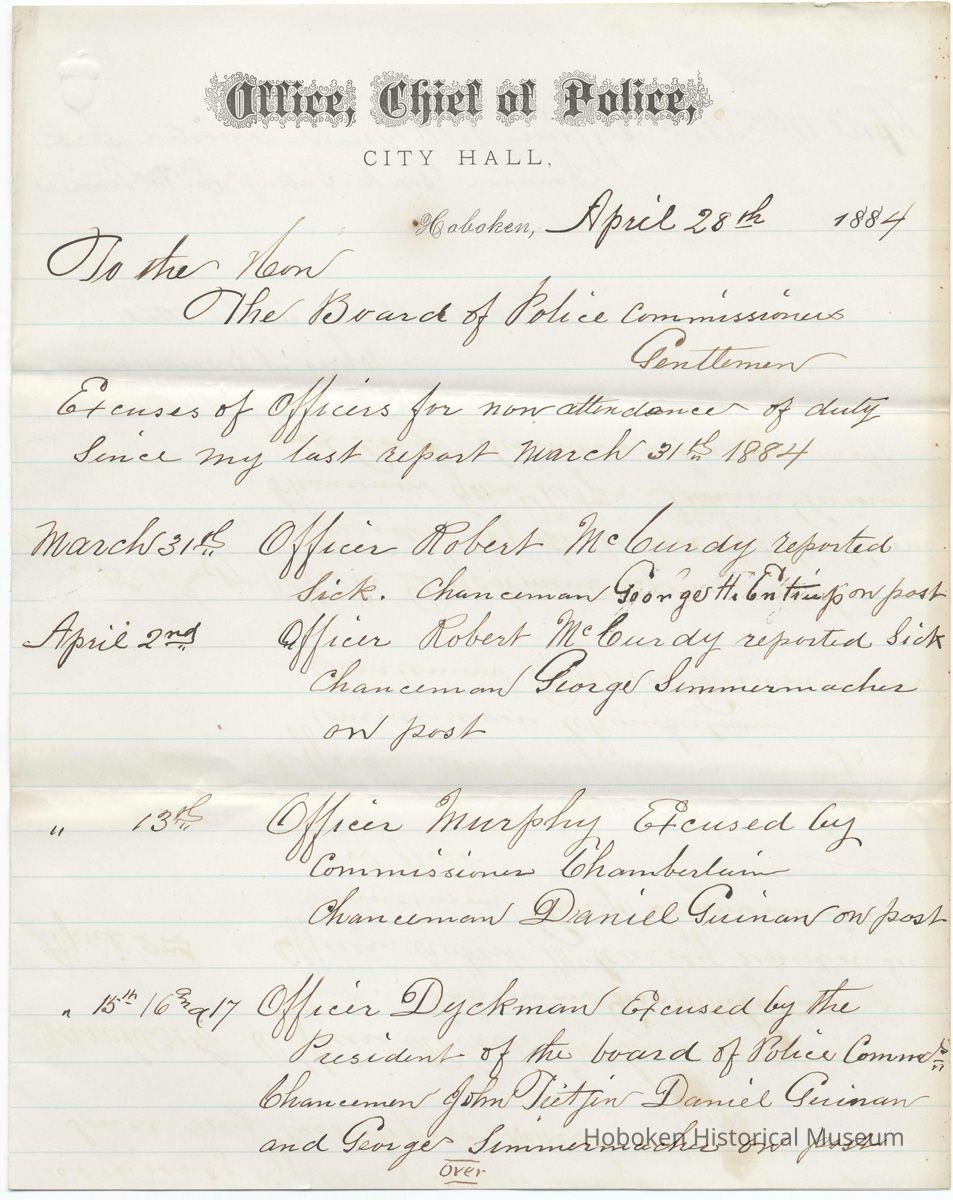 Office, Chief of Police,
CITY HALL,
Hoboken, April 28th 1884
To the Hon
The Board of Police Commissioners
Gentlemen
Excuses of Officers for non attendance of duty
Since my last report March 31th 1884
March 31th Officer Robert McCurdy reported
Sick. Chanceman George H. on post
April 2nd Officer Robert McCurdy reported Sick
Chanceman George Simmermacher
on post
" 13th Officer Murphy Excused by
Commissioner Chamberlain
Chanceman Daniel Guinan on post
" 15th 16 & 17 Officer Dyckman Excused by the
President of the board of Police Commrs
Chancemen John Tietjin Daniel Guinan
and George Simmermacher on post
Over
Hoboken Historical Museum